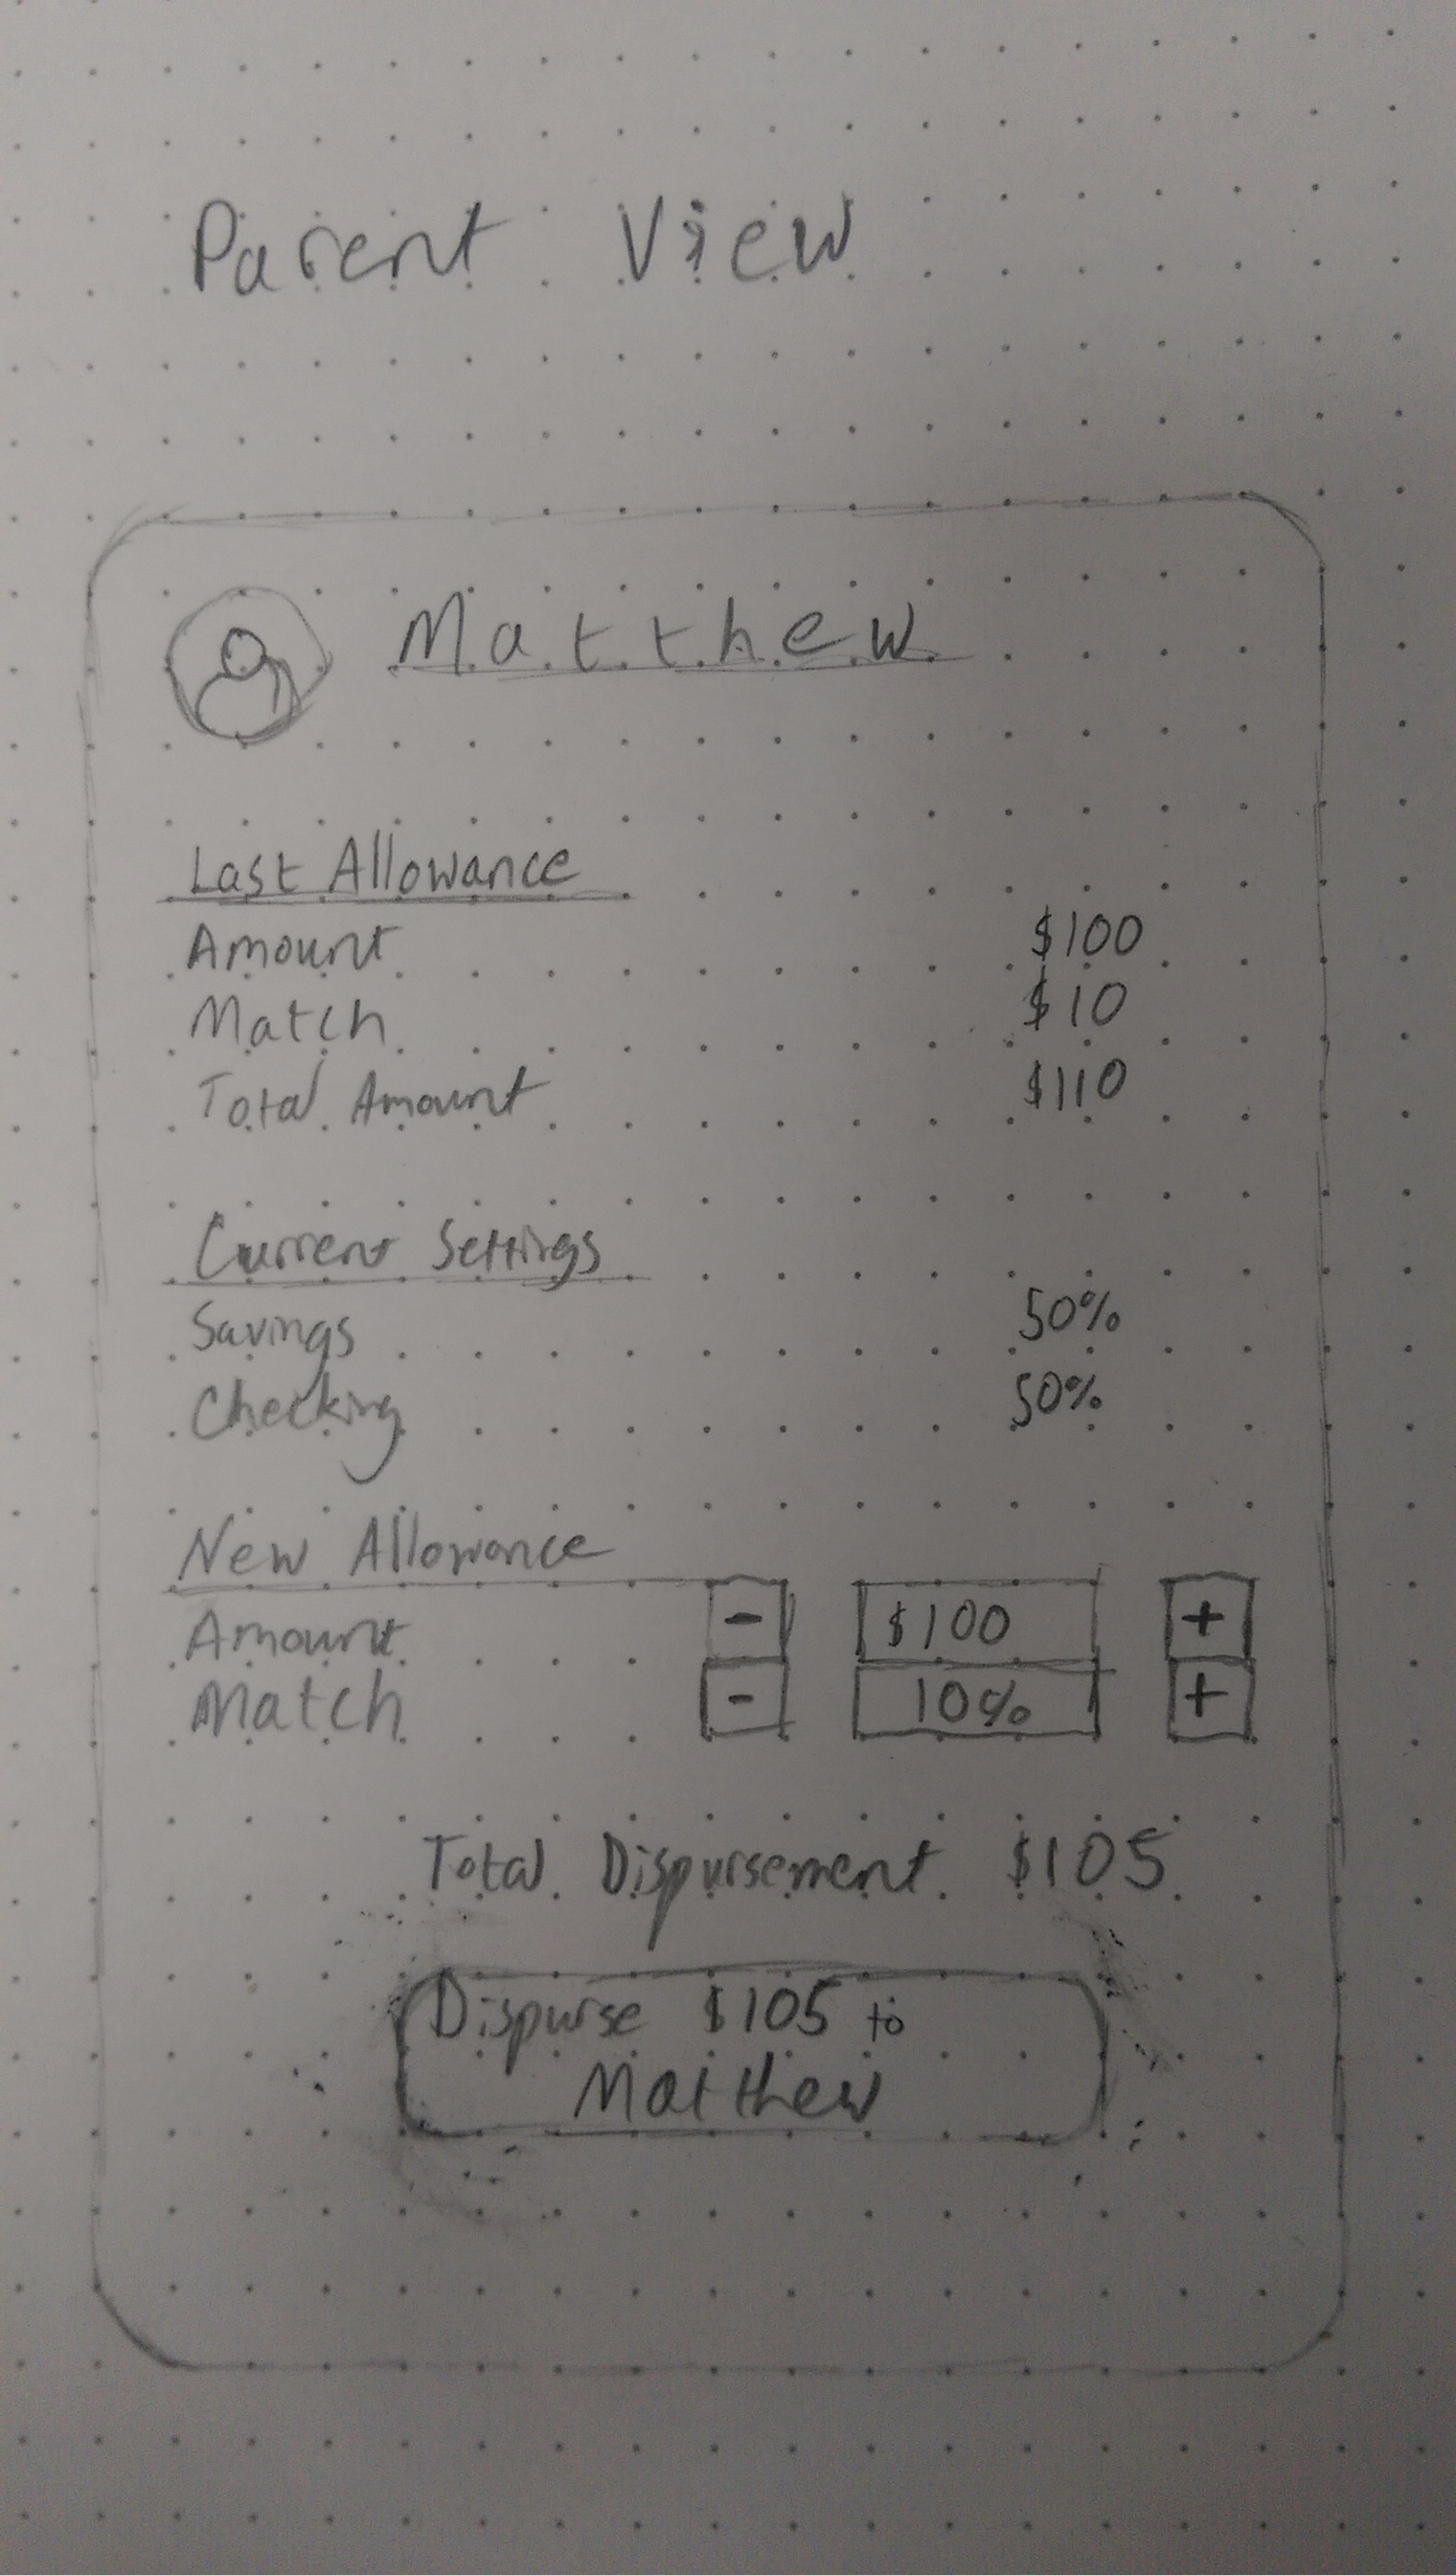 Parent View
Matthew
Last Allowance
Amount $100
Match $10
Total Amount $110
Current Settings
Savings 50%
Checking 50%
New Allowance
Amount - $100 +
Match - 10% +
Total Dispursement $105
Dispurse $105 to
Matthew